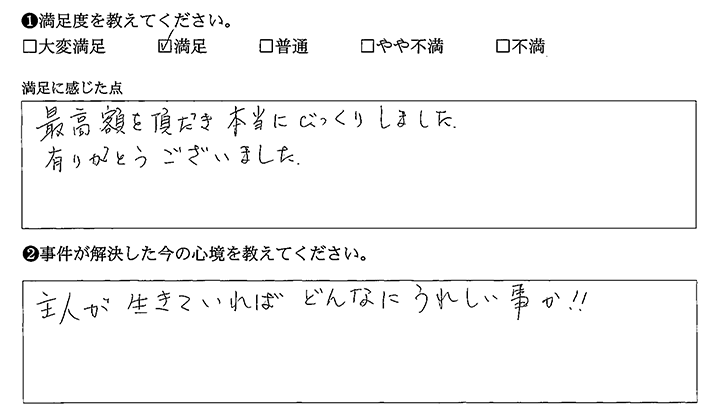 ❶満足度を教えてください。
□大変満足 ☑満足 □普通 □やや不満 □不満
満足に感じた点
最高額を頂だき 本当にびっくりしました.
有りがとうございました.
❷事件が解決した今の心境を教えてください。
主人が 生きていれば どんなに うれしい事か!!